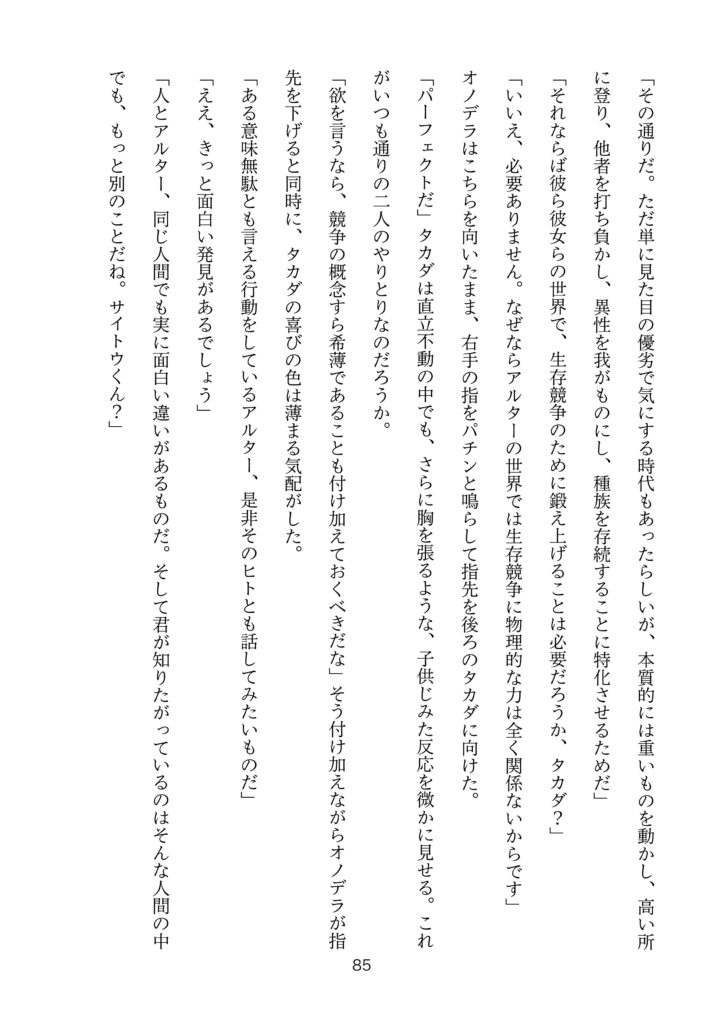 「その通りだ。ただ単に見た目の優劣で気にする時代もあったらしいが、本質的には重いものを動かし、高い所
に登り、他者を打ち負かし、異性を我がものにし、種族を存続することに特化させるためだ」
「それならば彼ら彼女らの世界で、生存競争のために鍛え上げることは必要だろうか、タカダ？」
「いいえ、必要ありません。なぜならアルターの世界では生存競争に物理的な力は全く関係ないからです」
オノデラはこちらを向いたまま、右手の指をパチンと鳴らして指先を後ろのタカダに向けた。
「パーフェクトだ」タカダは直立不動の中でも、さらに胸を張るような、子供じみた反応を微かに見せる。これ
がいつも通りの二人のやりとりなのだろうか。
「欲を言うなら、競争の概念すら希薄であることも付け加えておくべきだな」そう付け加えながらオノデラが指
先を下げると同時に、タカダの喜びの色は薄まる気配がした。
「ある意味無駄とも言える行動をしているアルター、是非そのヒトとも話してみたいものだ」
「ええ、きっと面白い発見があるでしょう」
「人とアルター、同じ人間でも実に面白い違いがあるものだ。そして君が知りたがっているのはそんな人間の中
でも、もっと別のことだね。サイトウくん？」
85